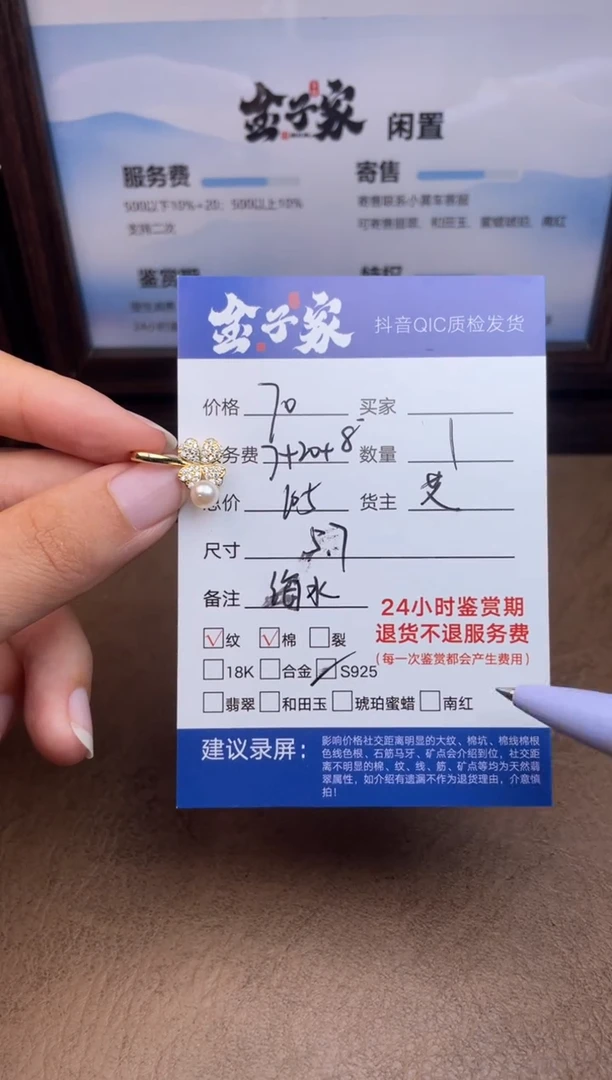 金子家 闲置
服务费 寄售
500以下10%+20；500以上10% 寄售联系小黄车客服
支持二次 可寄售翡翠、和田玉、蜜蜡琥珀、南红
鉴赏期
金子家 抖音QIC质检发货
价格 70 买家
务费 7+20+8 数量 1
总价 105 货主
尺寸
备注 海水
24小时鉴赏期
退货不退服务费
(每一次鉴赏都会产生费用)
纹 棉 裂
18K 合金 S925
翡翠 和田玉 琥珀蜜蜡 南红
建议录屏：
影响价格社交距离明显的大纹、棉坑、棉线棉根
色线色根、石筋马牙、矿点会介绍到位，社交距
离不明显的棉、纹、线、筋、矿点等均为天然翡
翠属性，如介绍有遗漏不作为退货理由，介意慎
拍！